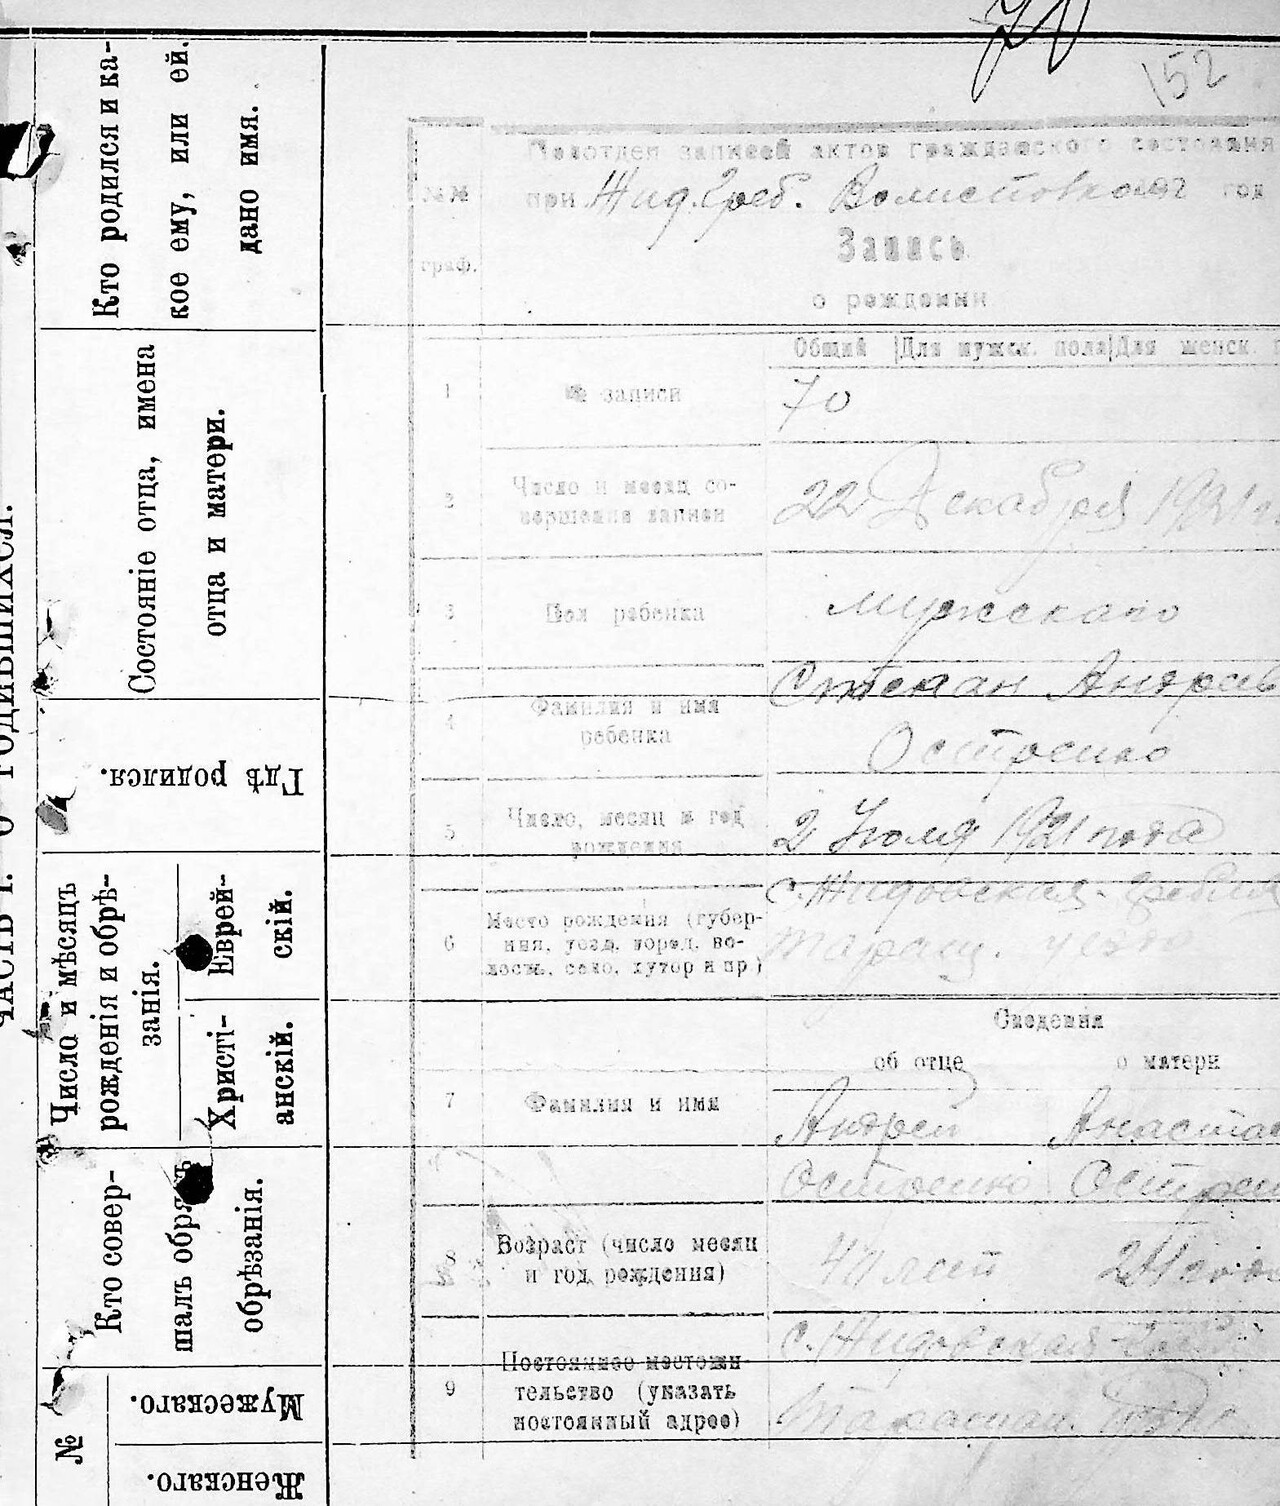 70
152
Кто родился и ка-
кое ему, или ей.
дано имя.
Состояніе отца, имена
отца и матери.
Гдѣ родился.
Число и мѣсяцъ
рожденія и обрѣ-
занія.
Еврей-
скій.
Христі-
анскій.
Кто совер-
шалъ обрядъ
обрѣзанія.
№
Мужескаго.
Женскаго.
ЧАСТЬ I. О РОДИВШИХСЯ.
Подотдел записей актов гражданского состояния
при Жид. Греб. Волисполкоме 192 год
Запись
о рождении
№№
граф.
Общий | Для мужск. пола | Для женск.
1 № записи 70
2 Число и месяц со-
вершения записи 22 Декабря 1921 г.
3 Пол ребенка мужскаго
4 Фамилия и имя
ребенка Степан Андреев
Остренко
5 Число, месяц и год
рождения 2 Июля 1921 года
6 Место рождения (губер-
ния, уезд, город, во-
лость, село, хутор и пр.) с. Жидовская-Гребля
Таращ. уезда
Сведения
об отце о матери
7 Фамилия и имя Андрей Анастас
Остренко Остренк
8 Возраст (число месяц
и год рождения) лет
9 Постоянное местожи-
тельство (указать
постоянный адрес) с. Жидовская-Гребля
Таращан. уезда